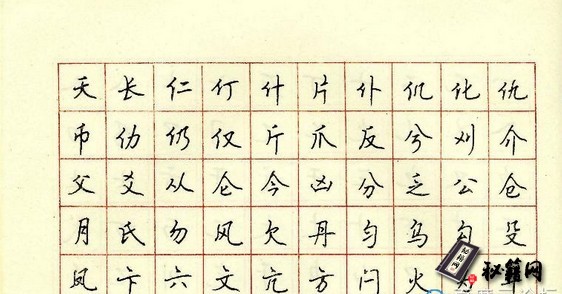 夭长仁仃什片仆仉化仇
币仂仍仅斤爪反兮刈介
父爻从仑今凶分乏公仓
月氏勿风欠丹匀乌勾殳
凤卞六文亢方闩火
秘籍网